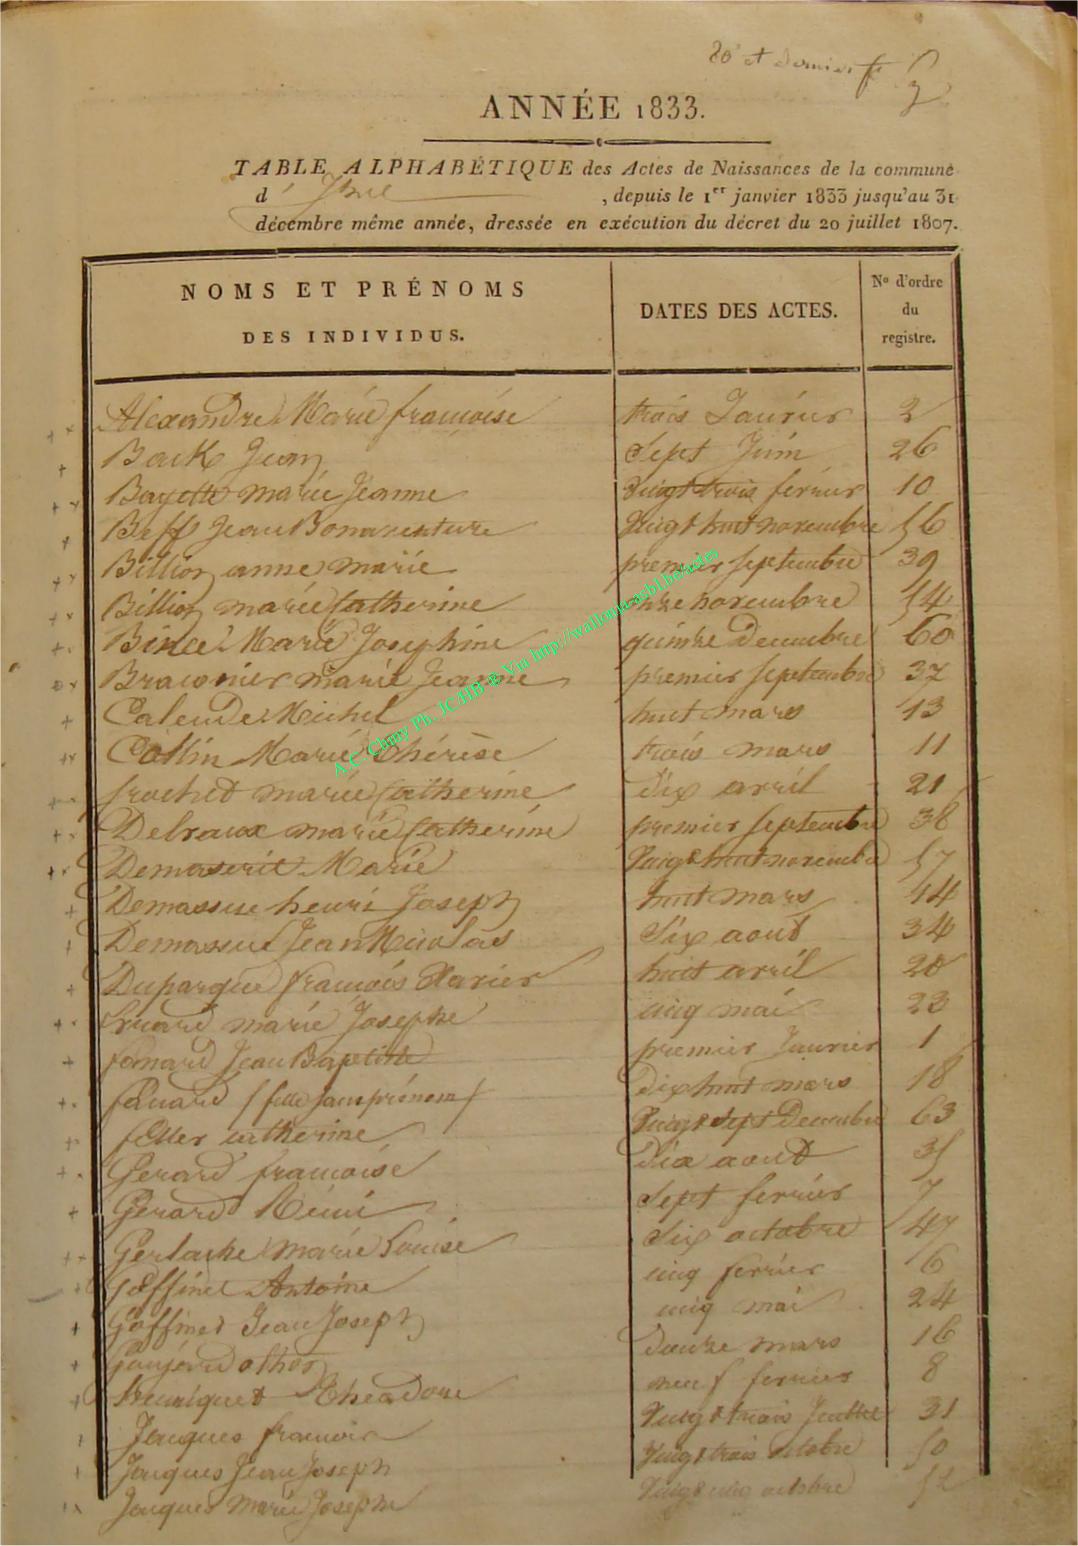 20e et dernier f
ANNÉE 1833.
TABLE ALPHABÉTIQUE des Actes de Naissances de la commune
d'            , depuis le 1er janvier 1833 jusqu'au 31
décembre même année, dressée en exécution du décret du 20 juillet 1807.
NOMS ET PRÉNOMS DES INDIVIDUS. DATES DES ACTES. No d'ordre du registre.
Alexandre Marie françoise trois Janvier 2
Back Jean Sept Juin 26
Bayette marie Jeanne vingt trois fevrier 10
Beff Jean Bonaventure Vingt huit novembre 56
Billion anne marie premier septembre 39
Billion marie Catherine onze novembre 54
Bince Marie Josephine quinze Decembre 60
Braconier marie Jeanne premier septembre 37
Calende Michel huit mars 13
Collin Marie Thérèse trois mars 11
Crochet marie Catherine Dix avril 21
Delvaux marie Catherine premier septembre 38
Marie Vingt huit novembre 57
Demasure henri Joseph huit mars 14
Jean Nicolas Six aout 34
Duparque françois Xavier huit avril 20
marie Josephe cinq mai 23
Jean Baptiste premier Janvier 1
(fille sans prénom) Dix huit mars 18
feller catherine Vingt sept Decembre 63
Gerard françoise Dix aout 35
Gerard Remi Sept fevrier 7
Gerlache marie Louise Six octobre 47
Goffinet Antoine cinq fevrier 6
Goffinet Jean Joseph cinq mai 24
douze mars 16
Theodore neuf fevrier 8
Jacques francois Vingt trois Juillet 31
Jacques Jean Joseph Vingt trois octobre 50
Jacques Marie Josephe Vingt cinq octobre 52
A.C. Chiny Ph. JCHB © Via http://wallonia-asbl.be/actes